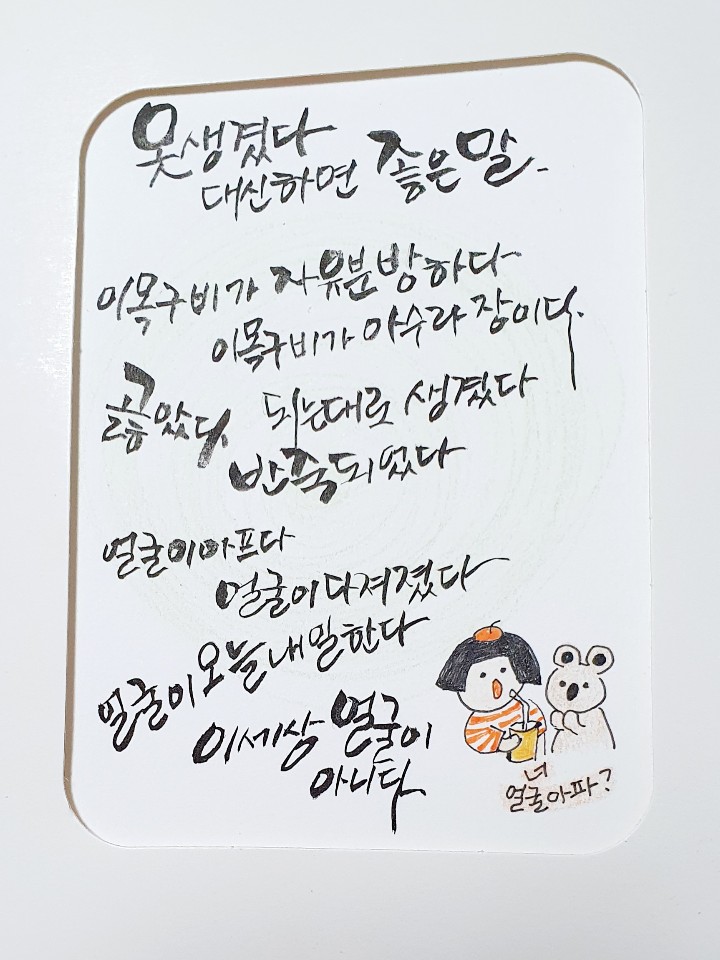 못생겼다
대신하면 좋은 말.
이목구비가 자유분방하다
이목구비가 아수라 장이다.
곯았다. 되는대로 생겼다
반죽되었다
얼굴이아프다
얼굴이다져졌다
얼굴이오늘내일한다
이세상 얼굴이
아니다.
너
얼굴아파?